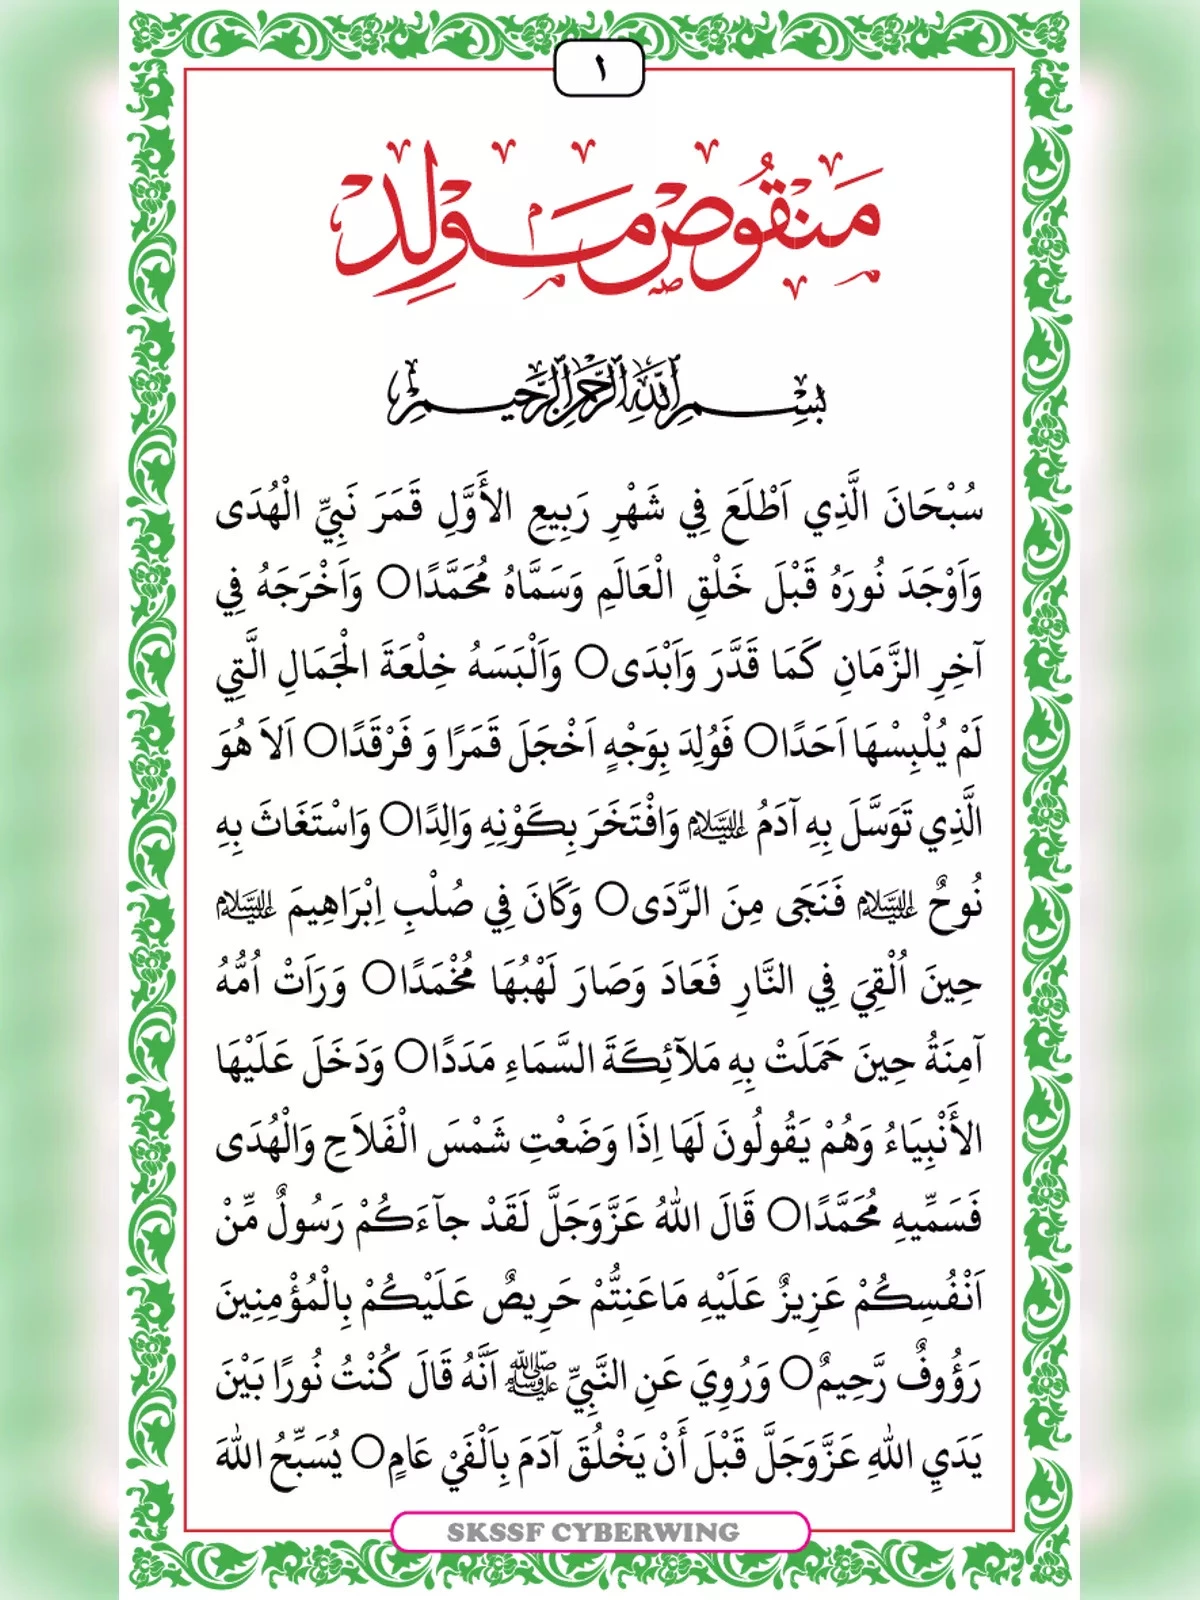 ١
مَنْقُوصْ مَوْلِدْ
بِسْمِ اللَّهِ الرَّحْمٰنِ الرَّحِيمِ
سُبْحَانَ الَّذِي اَطْلَعَ فِي شَهْرِ رَبِيعِ الأَوَّلِ قَمَرَ نَبِيِّ الْهُدَى
وَاَوْجَدَ نُورَهُ قَبْلَ خَلْقِ الْعَالَمِ وَسَمَّاهُ مُحَمَّدًا○ وَاَخْرَجَهُ فِي
آخِرِ الزَّمَانِ كَمَا قَدَّرَ وَاَبْدَى○ وَاَلْبَسَهُ خِلْعَةَ الْجَمَالِ الَّتِي
لَمْ يُلْبِسْهَا اَحَدًا○ فَوُلِدَ بِوَجْهٍ اَخْجَلَ قَمَرًا وَ فَرْقَدًا○ اَلاَ هُوَ
الَّذِي تَوَسَّلَ بِهِ آدَمُ عليه السلام وَافْتَخَرَ بِكَوْنِهِ وَالِدًا○ وَاسْتَغَاثَ بِهِ
نُوحٌ عليه السلام فَنَجَى مِنَ الرَّدَى○ وَكَانَ فِي صُلْبِ اِبْرَاهِيمَ عليه السلام
حِينَ اُلْقِيَ فِي النَّارِ فَعَادَ وَصَارَ لَهْبُهَا مُخْمَدًا○ وَرَاَتْ اُمُّهُ
آمِنَةُ حِينَ حَمَلَتْ بِهِ مَلآئِكَةَ السَّمَاءِ مَدَدًا○ وَدَخَلَ عَلَيْهَا
الأَنْبِيَاءُ وَهُمْ يَقُولُونَ لَهَا اِذَا وَضَعْتِ شَمْسَ الْفَلاَحِ وَالْهُدَى
فَسَمِّيهِ مُحَمَّدًا○ قَالَ اللهُ عَزَّوَجَلَّ لَقَدْ جآءَكُمْ رَسُولٌ مِّنْ
اَنْفُسِكُمْ عَزِيزٌ عَلَيْهِ مَاعَنِتُّمْ حَرِيصٌ عَلَيْكُمْ بِالْمُؤْمِنِينَ
رَؤُوفٌ رَّحِيمٌ○ وَرُوِيَ عَنِ النَّبِيِّ ﷺ اَنَّهُ قَالَ كُنْتُ نُورًا بَيْنَ
يَدَيِ اللهِ عَزَّوَجَلَّ قَبْلَ أَنْ يَخْلُقَ آدَمَ بِاَلْفَيْ عَامٍ○ يُسَبِّحُ اللهَ
SKSSF CYBERWING